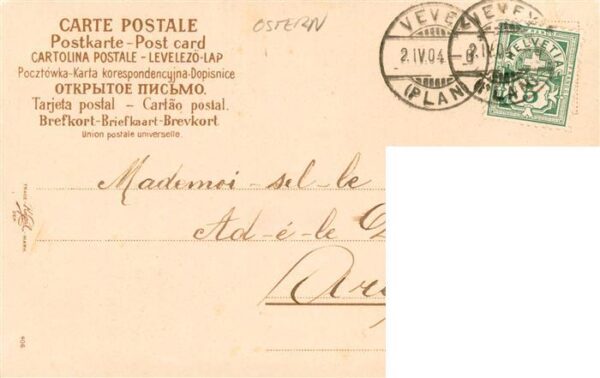 CARTE POSTALE
Postkarte-Post card
CARTOLINA POSTALE - LEVELEZÖ-LAP
Pocztówka-Karta korespondencyjna-Dopisnice
ОТКРЫТОЕ ПИСЬМО.
Tarjeta postal - Cartão postal.
Brefkort-Briefkaart-Brevkort
Union postale universelle.
OSTERN
VEVEY
2.IV.04.-8
(PLAN)
VEVEY
2.IV.
(PLAN)
HELVETIA
5
Mademoi-sel-le
Ad-é-le
TRADE
MARK